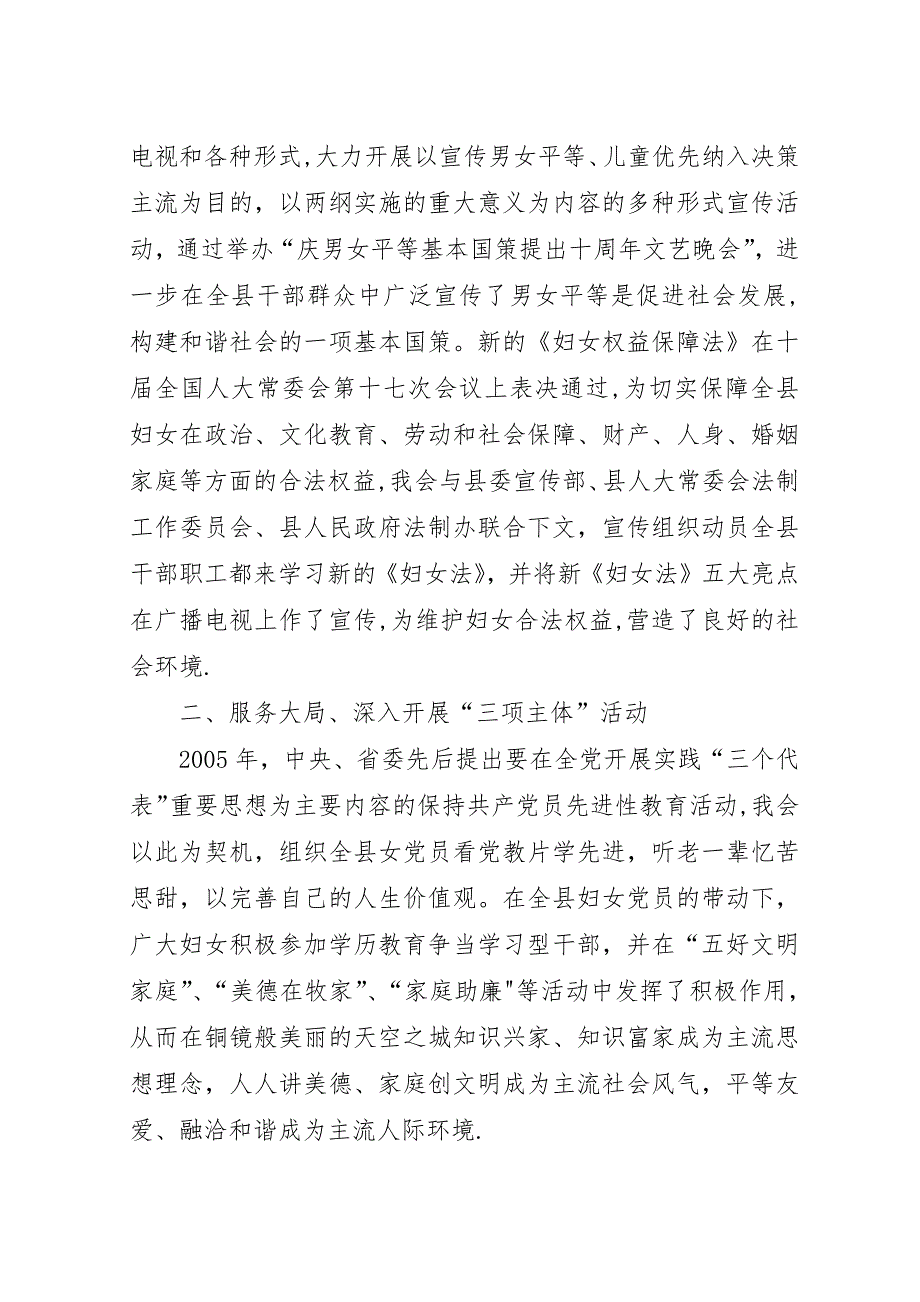 电视和各种形式,大力开展以宣传男女平等、儿童优先纳入决策
主流为目的，以两纲实施的重大意义为内容的多种形式宣传活
动，通过举办“庆男女平等基本国策提出十周年文艺晚会”，进
一步在全县干部群众中广泛宣传了男女平等是促进社会发展,
构建和谐社会的一项基本国策。新的《妇女权益保障法》在十
届全国人大常委会第十七次会议上表决通过,为切实保障全县
妇女在政治、文化教育、劳动和社会保障、财产、人身、婚姻
家庭等方面的合法权益,我会与县委宣传部、县人大常委会法制
工作委员会、县人民政府法制办联合下文，宣传组织动员全县
干部职工都来学习新的《妇女法》，并将新《妇女法》五大亮点
在广播电视上作了宣传,为维护妇女合法权益,营造了良好的社
会环境.
二、服务大局、深入开展“三项主体”活动
2005 年，中央、省委先后提出要在全党开展实践“三个代
表”重要思想为主要内容的保持共产党员先进性教育活动,我会
以此为契机，组织全县女党员看党教片学先进，听老一辈忆苦
思甜，以完善自己的人生价值观。在全县妇女党员的带动下，
广大妇女积极参加学历教育争当学习型干部，并在“五好文明
家庭”、“美德在牧家”、“家庭助廉"等活动中发挥了积极作用，
从而在铜镜般美丽的天空之城知识兴家、知识富家成为主流思
想理念，人人讲美德、家庭创文明成为主流社会风气，平等友
爱、融洽和谐成为主流人际环境.